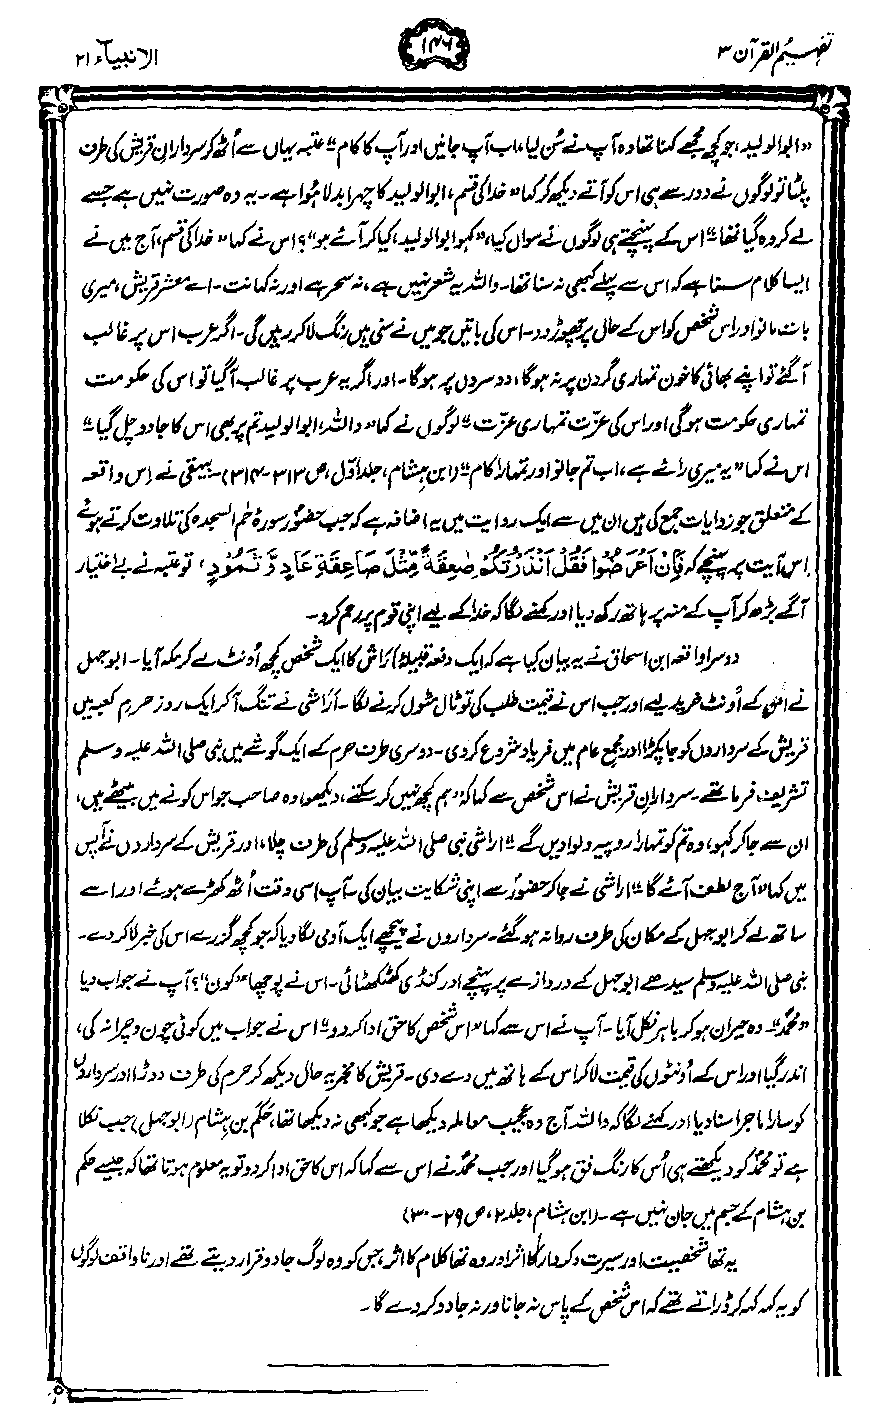 تفہیم القرآن ۳
۱۴۶
الانبیاء ۲۱
"ابوالولید، جو کچھ مجھے کہنا تھا وہ آپ نے سُن لیا، اب آپ جانیں اور آپ کا کام"۔ عتبہ یہاں سے اُٹھ کر سردارانِ قریش کی طرف
پلٹا تو لوگوں نے دور سے ہی اس کو آتے دیکھ کر کہا "خدا کی قسم، ابوالولید کا چہرا بدلا ہُوا ہے۔ یہ وہ صورت نہیں ہے جسے
لے کر وہ گیا تھا" اس کے پہنچتے ہی لوگوں نے سوال کیا، "کہو ابوالولید، کیا کر آئے ہو"؟ اس نے کہا "خدا کی قسم، آج میں نے
ایسا کلام سنا ہے کہ اس سے پہلے کبھی نہ سنا تھا۔ واللہ یہ شعر نہیں ہے، نہ سحر ہے اور نہ کہانت۔ اے معشرِ قریش، میری
بات مانو اور اس شخص کو اس کے حال پر چھوڑ دو۔ اس کی باتیں جو میں نے سنی ہیں رنگ لا کر رہیں گی۔ اگر عرب اس پر غالب
آ گئے تو اپنے بھائی کا خون تمہاری گردن پر نہ ہوگا، دوسروں پر ہوگا۔ اور اگر یہ عرب پر غالب آ گیا تو اس کی حکومت
تمہاری حکومت ہوگی اور اس کی عزّت تمہاری عزّت" لوگوں نے کہا "واللہ، ابوالولید تم پر بھی اس کا جادو چل گیا"
اس نے کہا "یہ میری رائے ہے، اب تم جانو اور تمہارا کام" (ابن ہشام، جلد اوّل، ص ۳۱۳-۳۱۴)۔ بیہقی نے اِس واقعہ
کے متعلق جو روایات جمع کی ہیں ان میں سے ایک روایت میں یہ اضافہ ہے کہ جب حضورؐ سورۂ حٰم السجدہ کی تلاوت کرتے ہوئے
اِس آیت پر پہنچے کہ فَاِنْ اَعْرَضُوْا فَقُلْ اَنْذَرْتُكُمْ صٰعِقَةً مِّثْلَ صَاعِقَةِ عَادٍ وَّ ثَمُوْدٍ، تو عتبہ نے بے اختیار
آگے بڑھ کر آپ کے منہ پر ہاتھ رکھ دیا اور کہنے لگا کہ خدا کے لیے اپنی قوم پر رحم کرو۔
دوسرا واقعہ ابن اسحاق نے یہ بیان کیا ہے کہ ایک دفعہ قبیلۂ اَرَاش کا ایک شخص کچھ اُونٹ لے کر مکہ آیا۔ ابوجہل
نے اس کے اُونٹ خرید لیے اور جب اس نے قیمت طلب کی تو ٹال مٹول کرنے لگا۔ اَرَاشی نے تنگ آ کر ایک روز حرمِ کعبہ میں
قریش کے سرداروں کو جا پکڑا اور مجمعِ عام میں فریاد شروع کر دی۔ دوسری طرف حرم کے ایک گوشے میں نبی صلی اللہ علیہ وسلم
تشریف فرما تھے۔ سردارانِ قریش نے اس شخص سے کہا کہ "ہم کچھ نہیں کر سکتے، دیکھو، وہ صاحب جو اس کونے میں بیٹھے ہیں،
ان سے جا کر کہو، وہ تم کو تمہارا روپیہ دلوا دیں گے" اراشی نبی صلی اللہ علیہ وسلم کی طرف چلا، اور قریش کے سرداروں نے آپس
میں کہا "آج لطف آئے گا" اراشی نے جا کر حضورؐ سے اپنی شکایت بیان کی۔ آپ اسی وقت اُٹھ کھڑے ہوئے اور اسے
ساتھ لے کر ابوجہل کے مکان کی طرف روانہ ہو گئے۔ سرداروں نے پیچھے ایک آدمی لگا دیا کہ جو کچھ گزرے اس کی خبر لا کر دے۔
نبی صلی اللہ علیہ وسلم سیدھے ابوجہل کے دروازے پر پہنچے اور کنڈی کھٹکھٹائی۔ اس نے پوچھا "کون"؟ آپ نے جواب دیا
"محمدؐ"۔ وہ حیران ہو کر باہر نکل آیا۔ آپ نے اس سے کہا "اس شخص کا حق ادا کر دو" اس نے جواب میں کوئی چون و چرا نہ کی،
اندر گیا اور اس کے اُونٹوں کی قیمت لا کر اس کے ہاتھ میں دے دی۔ قریش کا مخبر یہ حال دیکھ کر حرم کی طرف دوڑا اور سرداروں
کو سارا ماجرا سنا دیا اور کہنے لگا کہ واللہ آج وہ عجیب معاملہ دیکھا ہے جو کبھی نہ دیکھا تھا، حَکَم بن ہشام (ابوجہل) جب نکلا
ہے تو محمدؐ کو دیکھتے ہی اُس کا رنگ فق ہو گیا اور جب محمدؐ نے اس سے کہا کہ اس کا حق ادا کر دو تو یہ معلوم ہوتا تھا کہ جیسے حکم
بن ہشام کے جسم میں جان نہیں ہے۔ (ابن ہشام، جلد ۲، ص ۲۹-۳۰)
یہ تھا شخصیت اور سیرت و کردار کا اثر اور وہ تھا کلام کا اثر، جس کو وہ لوگ جادو قرار دیتے تھے اور ناواقف لوگوں
کو یہ کہہ کہہ کر ڈراتے تھے کہ اس شخص کے پاس نہ جانا ورنہ جادو کر دے گا۔